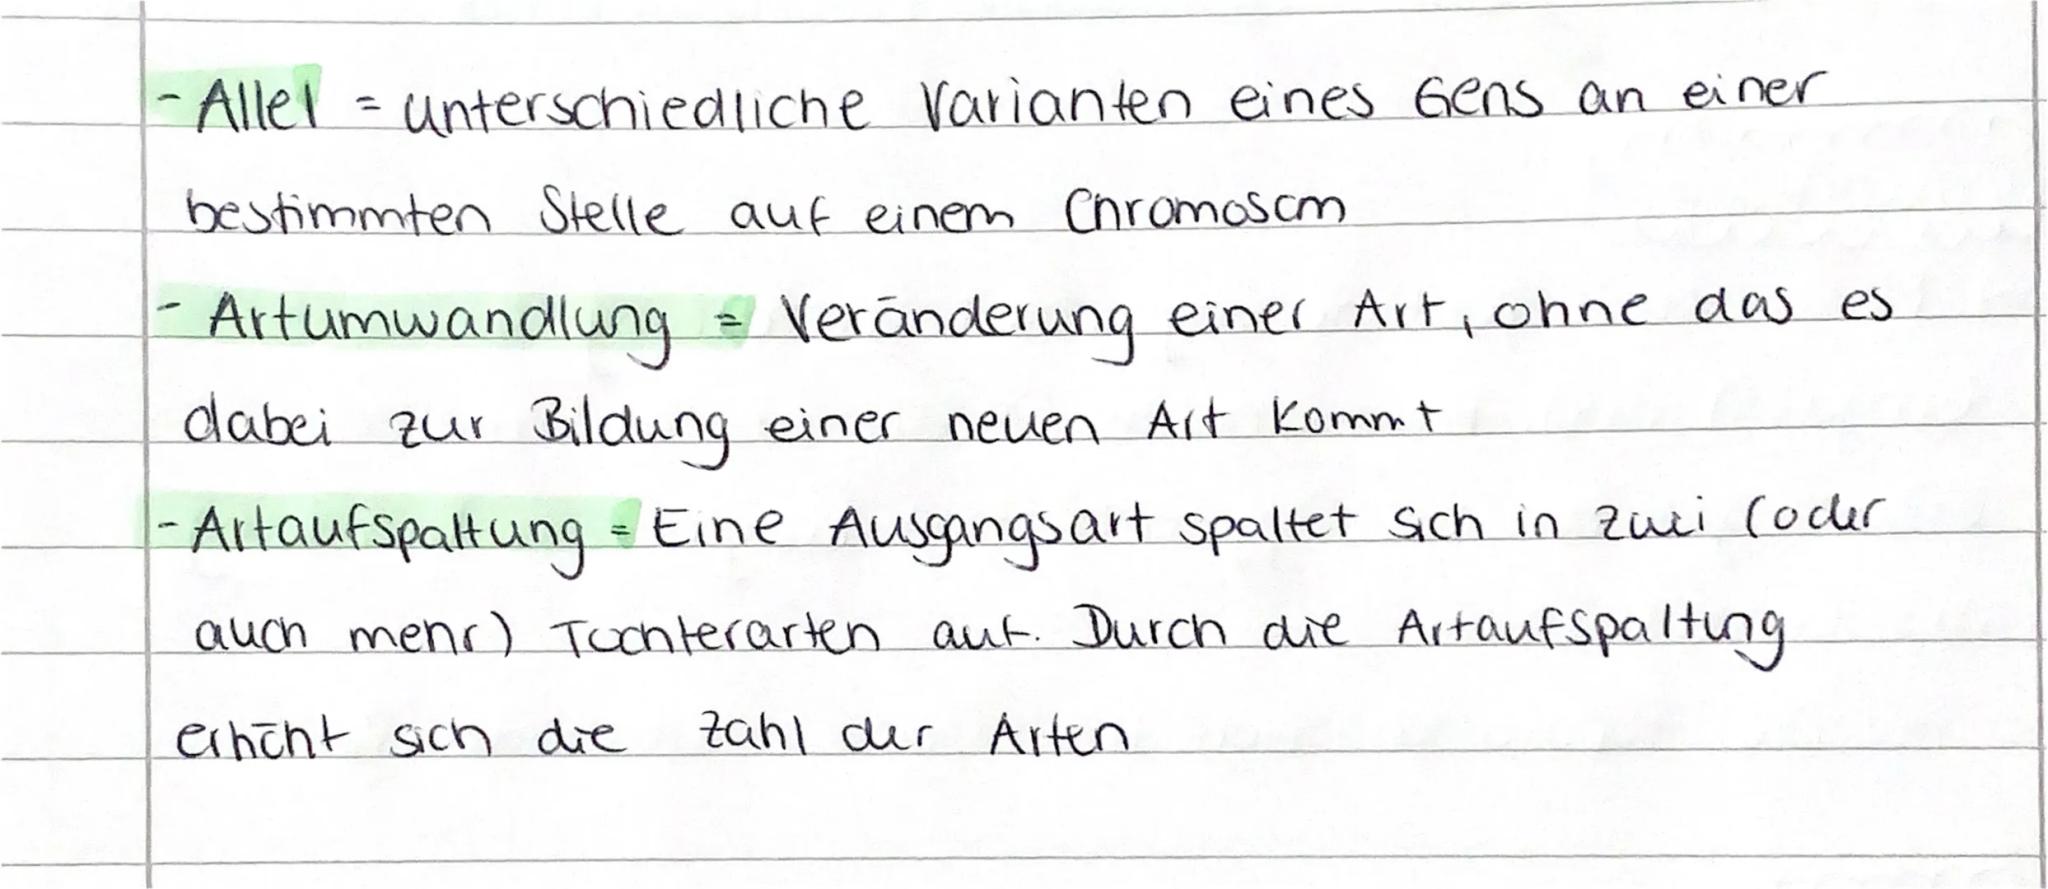 - Allel = unterschiedliche Varianten eines Gens an einer
bestimmten Stelle auf einem Chromosom
- Artumwandlung = Veränderung einer Art, ohne das es
dabei zur Bildung einer neuen Art kommt
- Artaufspaltung = Eine Ausgangsart spaltet sich in zwei (oder
auch mehr) Tochterarten auf. Durch die Artaufspaltung
erhöht sich die Zahl der Arten